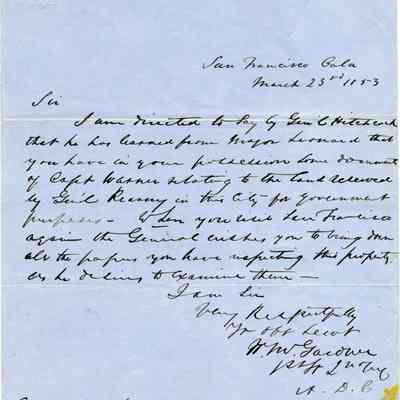 San Francisco Cala
March 23rd 1853
Sir
I am directed to say by Genl Hitchcock
that he has learned from Major Leonard that
you have in your possession some documents
of Capt Warner relating to the land reserved
by Genl Kearny in this City for government
purposes - When you visit San Francisco
again the General wishes you to bring down
all the papers you have respecting this property
as he desires to examine them -
I am Sir
Very Respectfully
Yr Obt Servt
W. M. Gardner
A. D. C